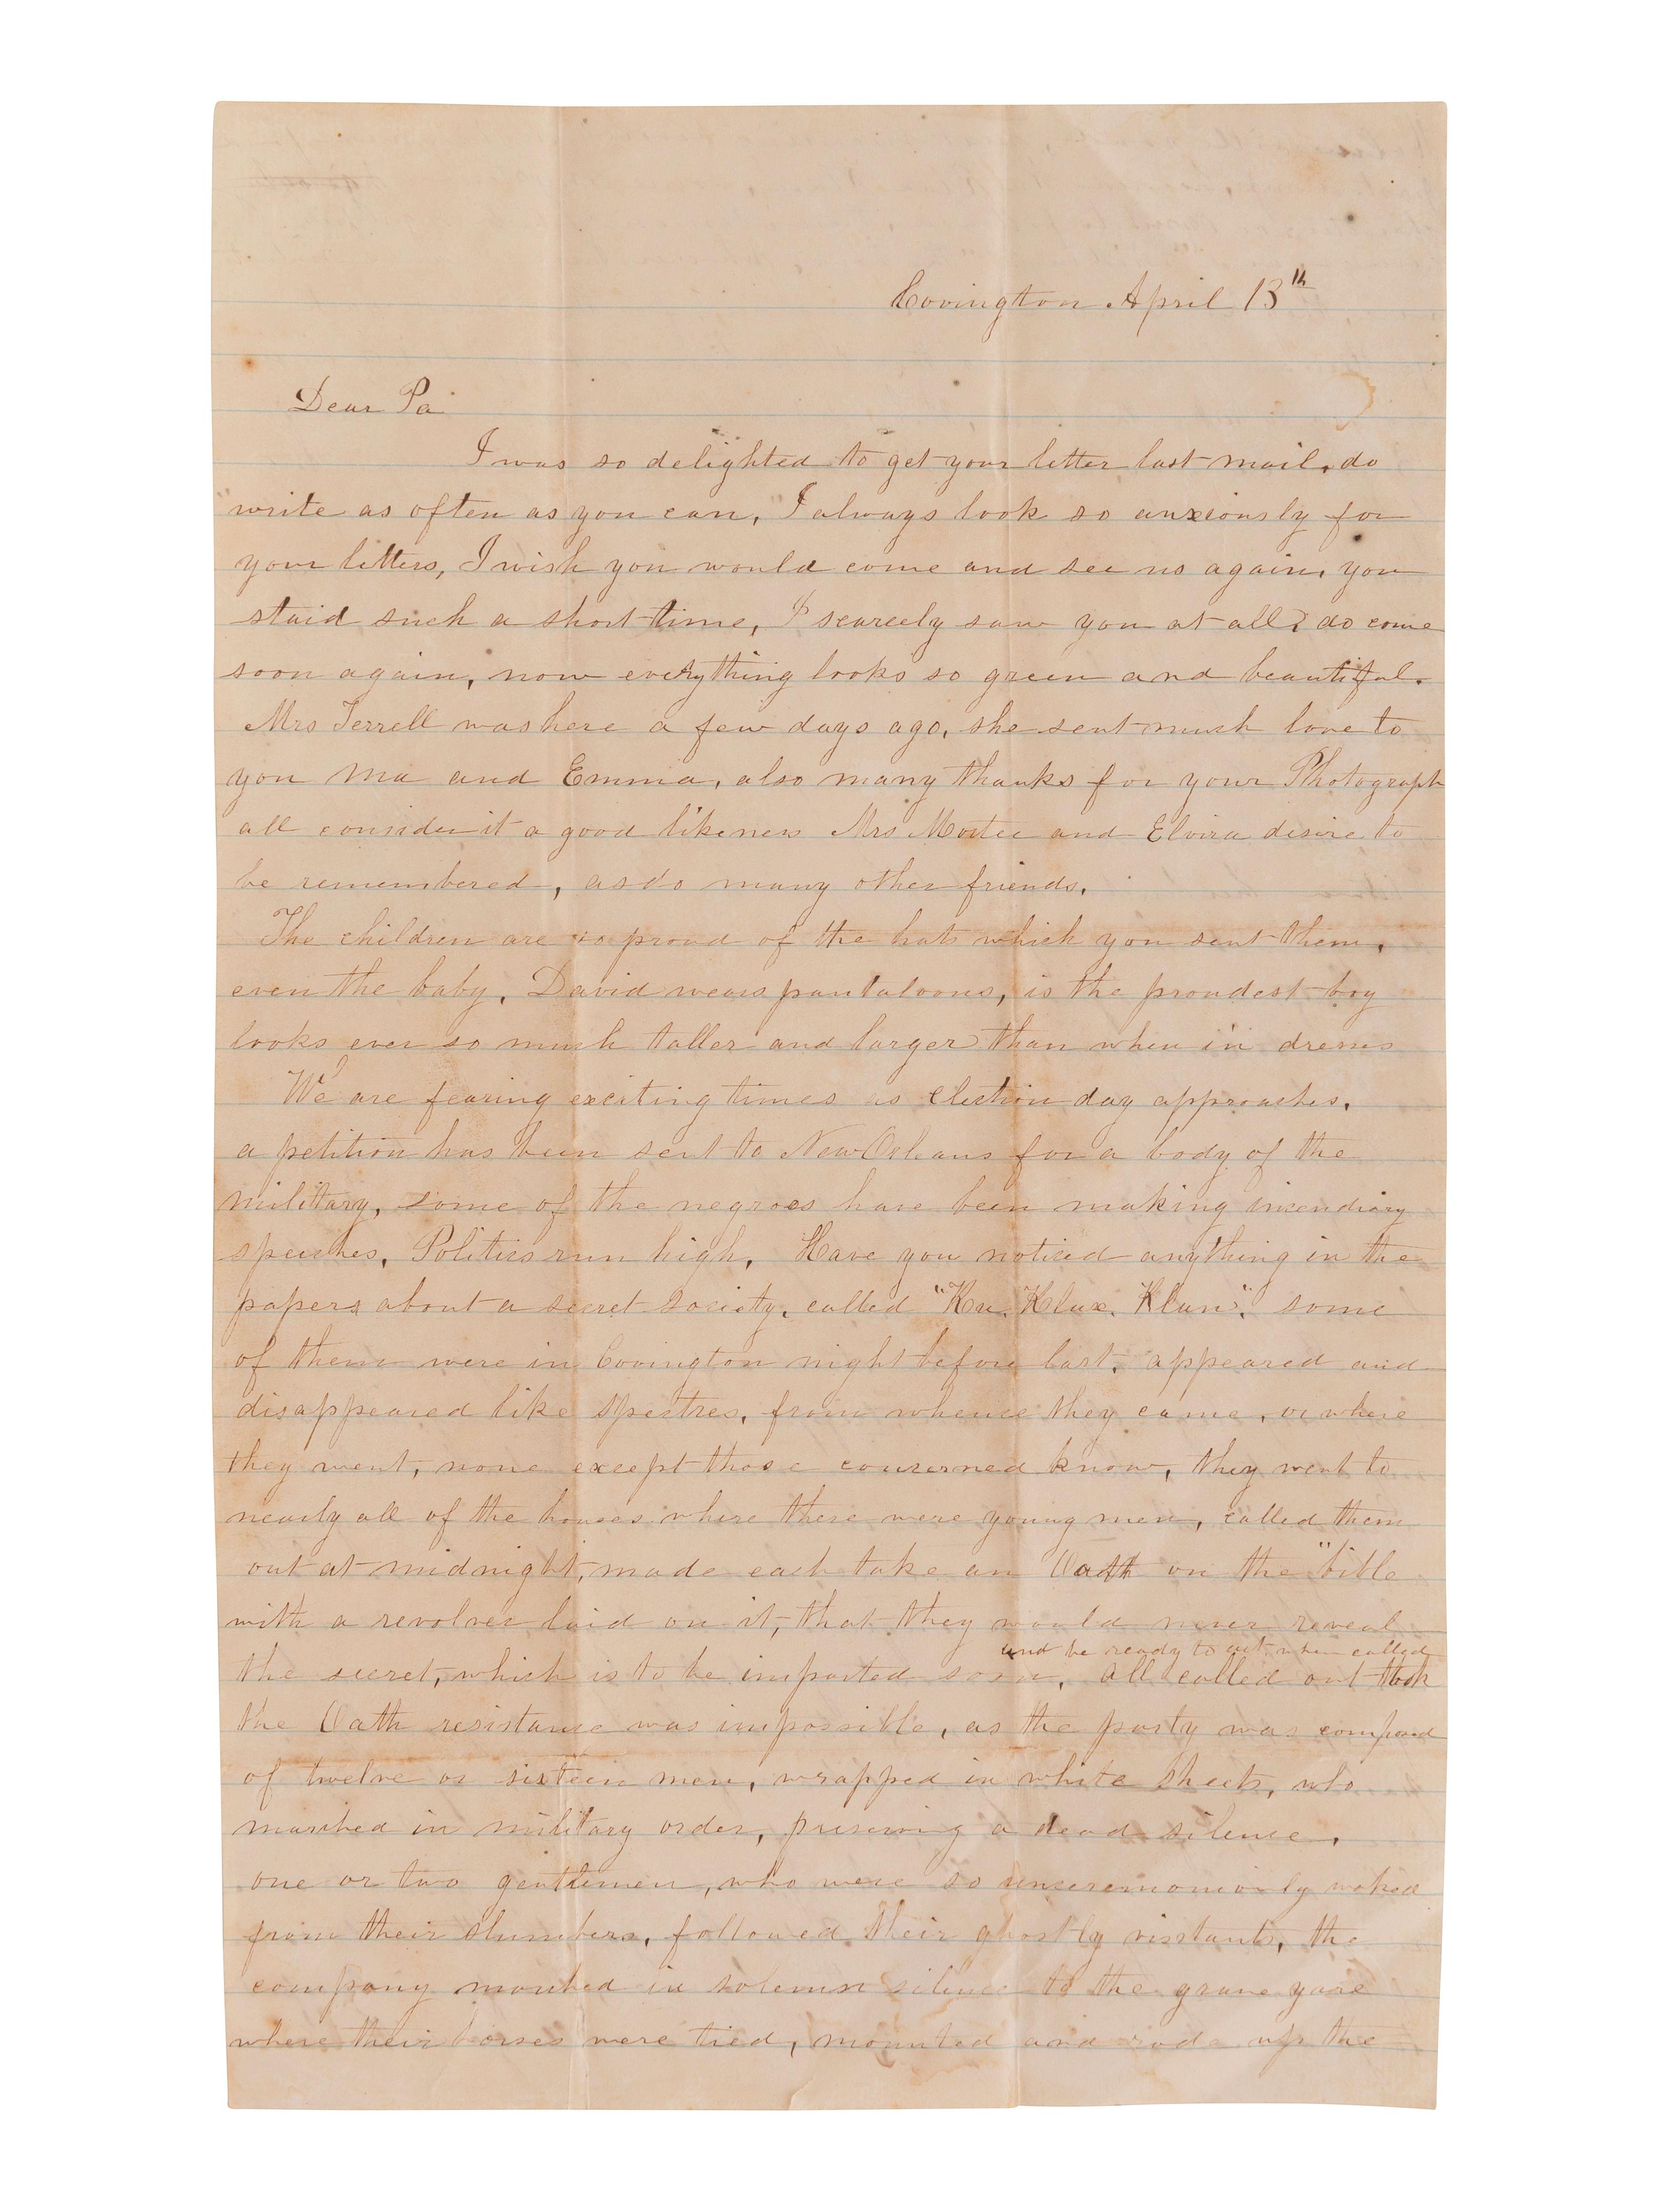 Covington April 13th
Dear Pa
I was so delighted to get your letter last mail, do
write as often as you can, I always look so anxiously for
your letters, I wish you would come and see us again, you
staid such a short time, I scarcely saw you at all, do come
soon again, now everything looks so green and beautiful.
Mrs Terrell was here a few days ago, she sent much love to
you Ma and Emma, also many thanks for your Photograph
all consider it a good likeness Mrs and Elvira desire to
be remembered, as do many other friends.
The children are so proud of the hats which you sent them,
even the baby. David wears pantaloons, is the proudest boy
looks ever so much taller and larger than when in dresses
We are fearing exciting times as election day approaches,
a petition has been sent to New Orleans for a body of the
military, some of the negroes have been making incendiary
speeches, Politics run high, Have you noticed anything in the
papers about a secret society, called "Ku. Klux. Klan". some
of them were in Covington night before last, appeared and
disappeared like spectres, from whence they came, or where
they went, none except those concerned know, they went to
nearly all of the houses where there were young men, called them
out at midnight, made each take an Oath on the "bible
with a revolver laid on it, that they would never reveal
and be ready to act when called
the secret, which is to be imparted soon, all called out took
the Oath resistance was impossible, as the party was composed
of twelve or sixteen men, wrapped in white sheets, who
marched in military order, preserving a dead silence,
one or two gentlemen, who were so unceremoniously waked
from their slumbers, followed their ghostly visitants, the
company marched in solemn silence to the grave yard
where their horses were tied, mounted and rode up the